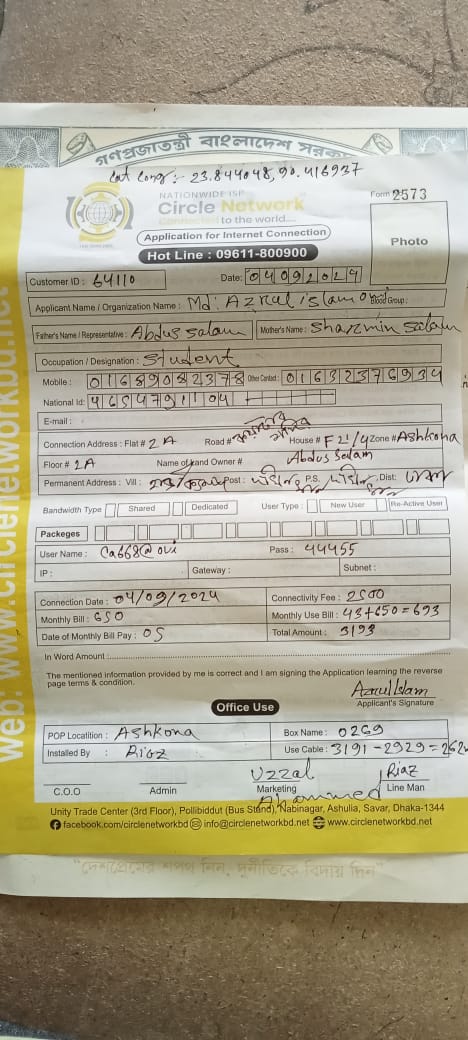 গণপ্রজাতন্ত্রী বাংলাদেশ সরকা
Lat Long :- 23.844048, 90.416937
NATIONWIDE ISP
Form 2573
Circle Network
Connected to the world....
Application for Internet Connection
Photo
Hot Line : 09611-800900
Customer ID : 64110 Date: 04092024
Applicant Name / Organization Name : Md: Azrul islam ovi Blood Group:
Father's Name / Representative : Abdus salam Mother's Name : Sharmin salam
Occupation / Designation : Student
Mobile : 01689082378 Other Contact : 01632376934
National Id: 4654791104
E-mail :
Connection Address : Flat # 2A Road # House # F21/4 Zone # Ashkona
Floor # 2A Name of land Owner # Abdus Salam
Permanent Address : Vill : Post : P.S. Dist:
Bandwidth Type Shared Dedicated User Type : New User Re-Active User
Packeges
User Name : Ca668@ovi Pass : 44455
IP : Gateway : Subnet :
Connection Date : 04/09/2024 Connectivity Fee : 2500
Monthly Bill : 650 Monthly Use Bill : 43+650=693
Date of Monthly Bill Pay : 05 Total Amount : 3193
In Word Amount :
The mentioned information provided by me is correct and I am signing the Application learning the reverse
page terms & condition.
Azrul Islam
Applicant's Signature
Office Use
POP Locatition : Ashkona Box Name : 0269
Installed By : Riaz Use Cable : 3191-2929=262
Uzzal Riaz
C.O.O Admin Marketing Line Man
Ahammed
Unity Trade Center (3rd Floor), Pollibiddut (Bus Stand), Nabinagar, Ashulia, Savar, Dhaka-1344
facebook.com/circlenetworkbd info@circlenetworkbd.net www.circlenetworkbd.net
web: www.circlenetworkbd.net
"দেশপ্রেমের শপথ নিন, দুর্নীতিকে বিদায় দিন"